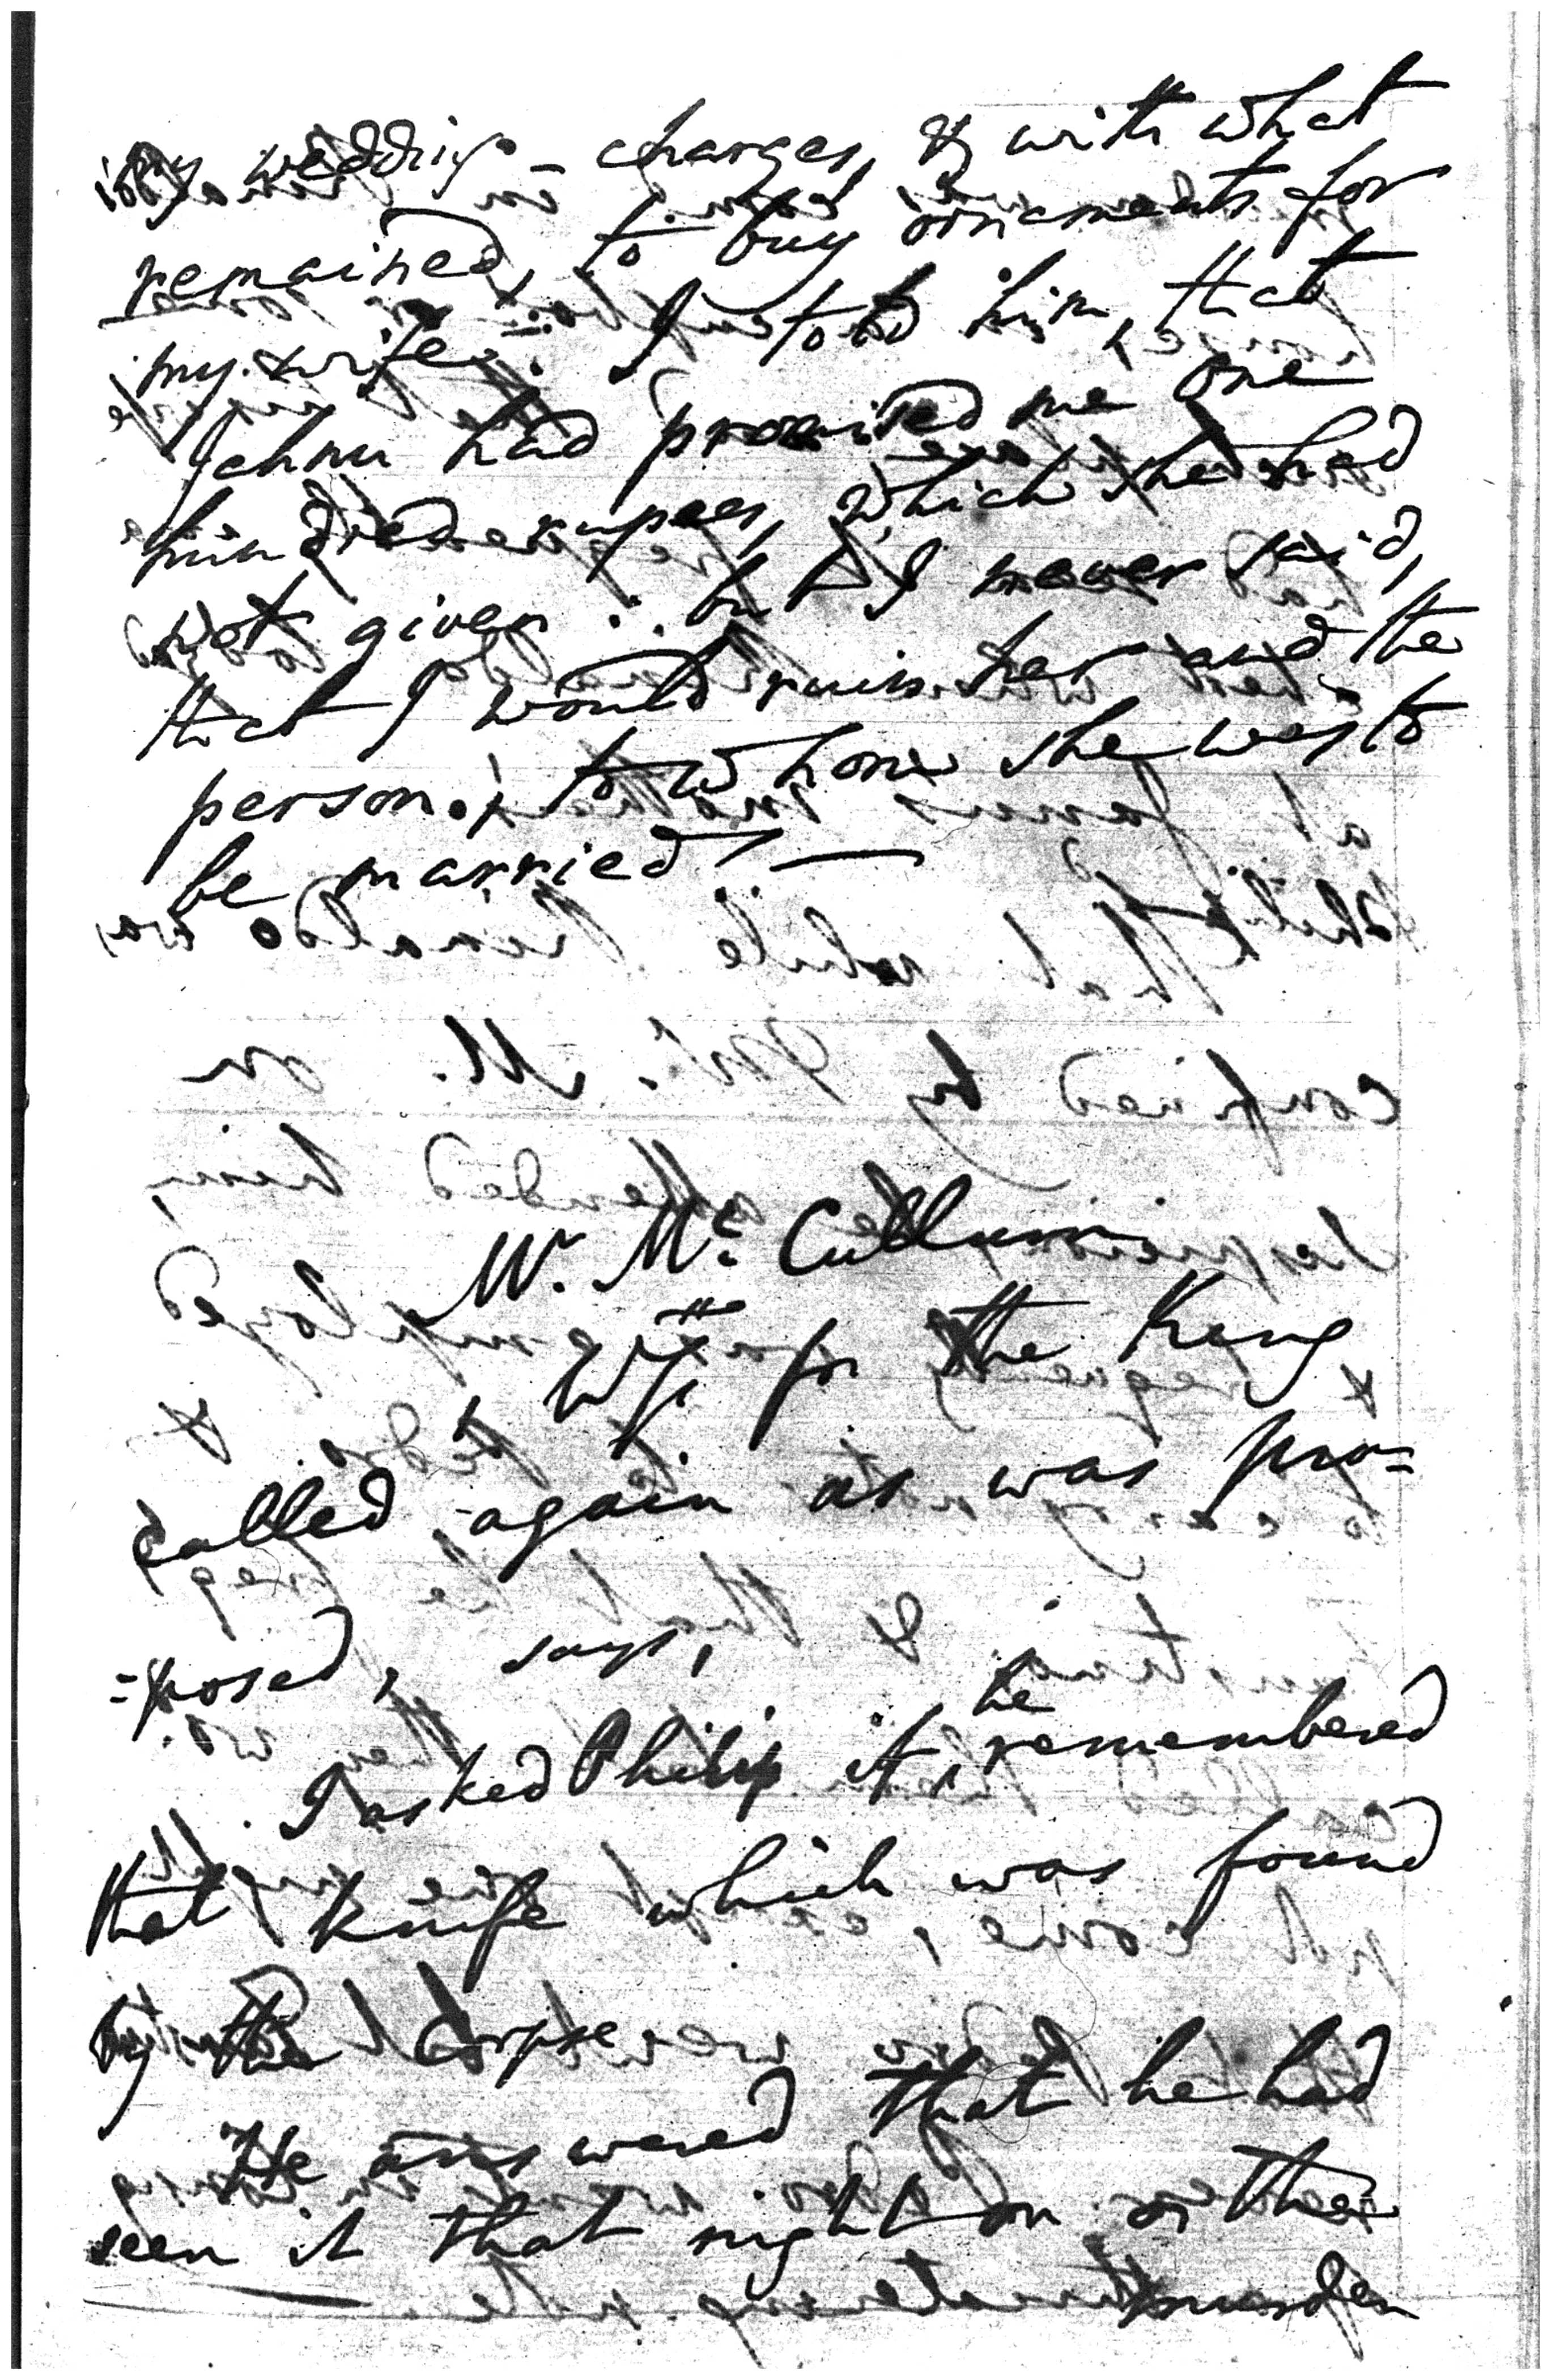 my wedding-charges, & with what
remained, to buy ornaments for
my wife: I told him, that
had promised me one
hundred rupees, which she had
not given: but I never said,
that I would ruin her and the
person, to whom she was to
be married —
W. Mc. Cullum
for the King
called again as was pro=
=posed, says,
I asked Philip if, he remembered
that knife which was found
by the Corpse
He answered that he had
seen it that night on